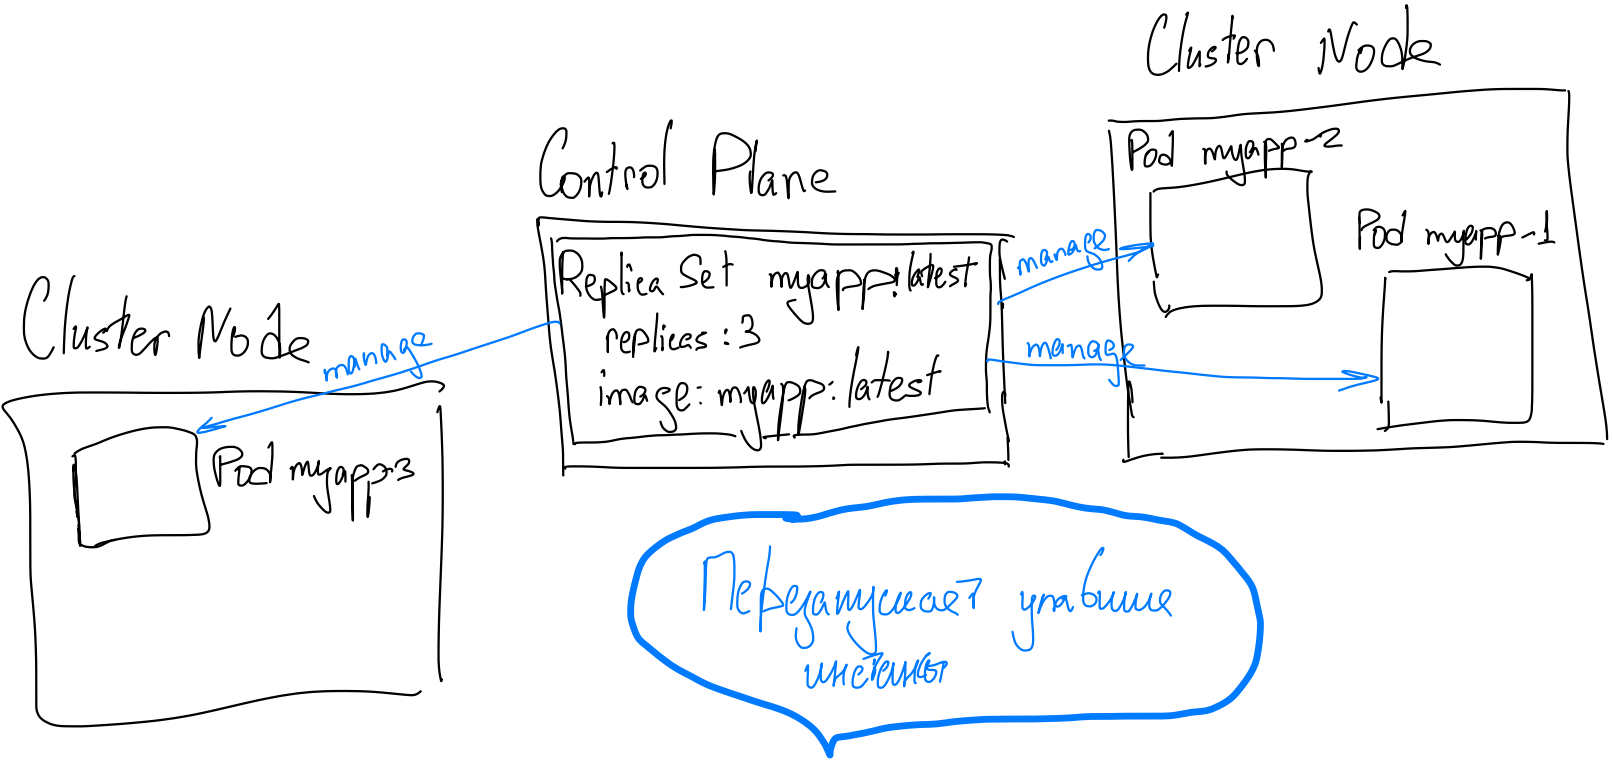 Cluster Node
Pod myapp-2
Pod myapp-1
Control Plane
Replica Set myapp:latest
replicas: 3
image: myapp:latest
manage
manage
Cluster Node
manage
Pod myapp-3
Перезапускает упавшие
инстансы